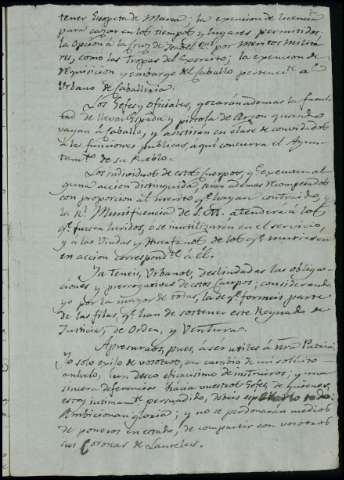 tener Escopeta de Marca; la exencion de licencia
para cazar en los tiempos y lugares permitidos;
la opcion á la Cruz de Isabel 2ª por meritos milita
res, como las Tropas del Exercito; la exencion de
requisicion y embargo del Caballo perteneciᵗᵉ al
Urbano de Caballeria.
Los Gefes y oficiales, gozarán ademas la facul
tad de llevar Espada y pistola de Arzon quando
vayan á Caballo, y asistiran en clase de convidados
á las funciones publicas, a qᵉ concurra el Ayun
tamᵗᵒ de su Pueblo.
Los individuos de estos Cuerpos, qᵉ executen al
guna accion distinguida, seran ademas recompensados
con proporcion al merito qᵉ hayan contraido, y
la Rˡ Munificencia de S.M. atenderá á los
qᵉ fuesen heridos, o se inutilizaren en el servicio,
y á las Viudas y Huerfanos de los qᵉ murieren
en accion correspondᵗᵉ á él.
Ya teneis, Urbanos, deslindadas las obliga-
ciones y prerrogativas de estos Cuerpos; considerando
yo por la mayor de todas, la de qᵉ formeis parte
de las filas, qᵉ han de sostener este Reynado de
Justicia, de Orden, y Ventura.
Apresuraos, pues, á ser utiles á ntra Patria:
yo solo exijo de vosotros, en cambio de mi solicito
anhelo, un deseo eficacisimo de instruiros; y una
sincera deferencia hacia vuestros Gefes de quienes,
estoy intimamᵗᵉ persuadido, debeis esperarlo todo:
Ambicionan gloria; y no se perdonarán medios
de poneros en estado, de compartir con vosotros
sus Coronas de Laureles.